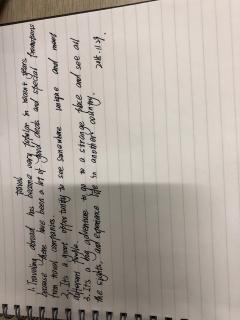 travel
1. Traveling abroad has become very popular in recent years
because there have been a lot of good deals and special promotions
from travel companies.
2. It's a great opportunity to see somewhere unique and meet
different people.
3. It's a big adventure to go to a strange place and see all
the sights, and experience life in another country. 2018.11.29.